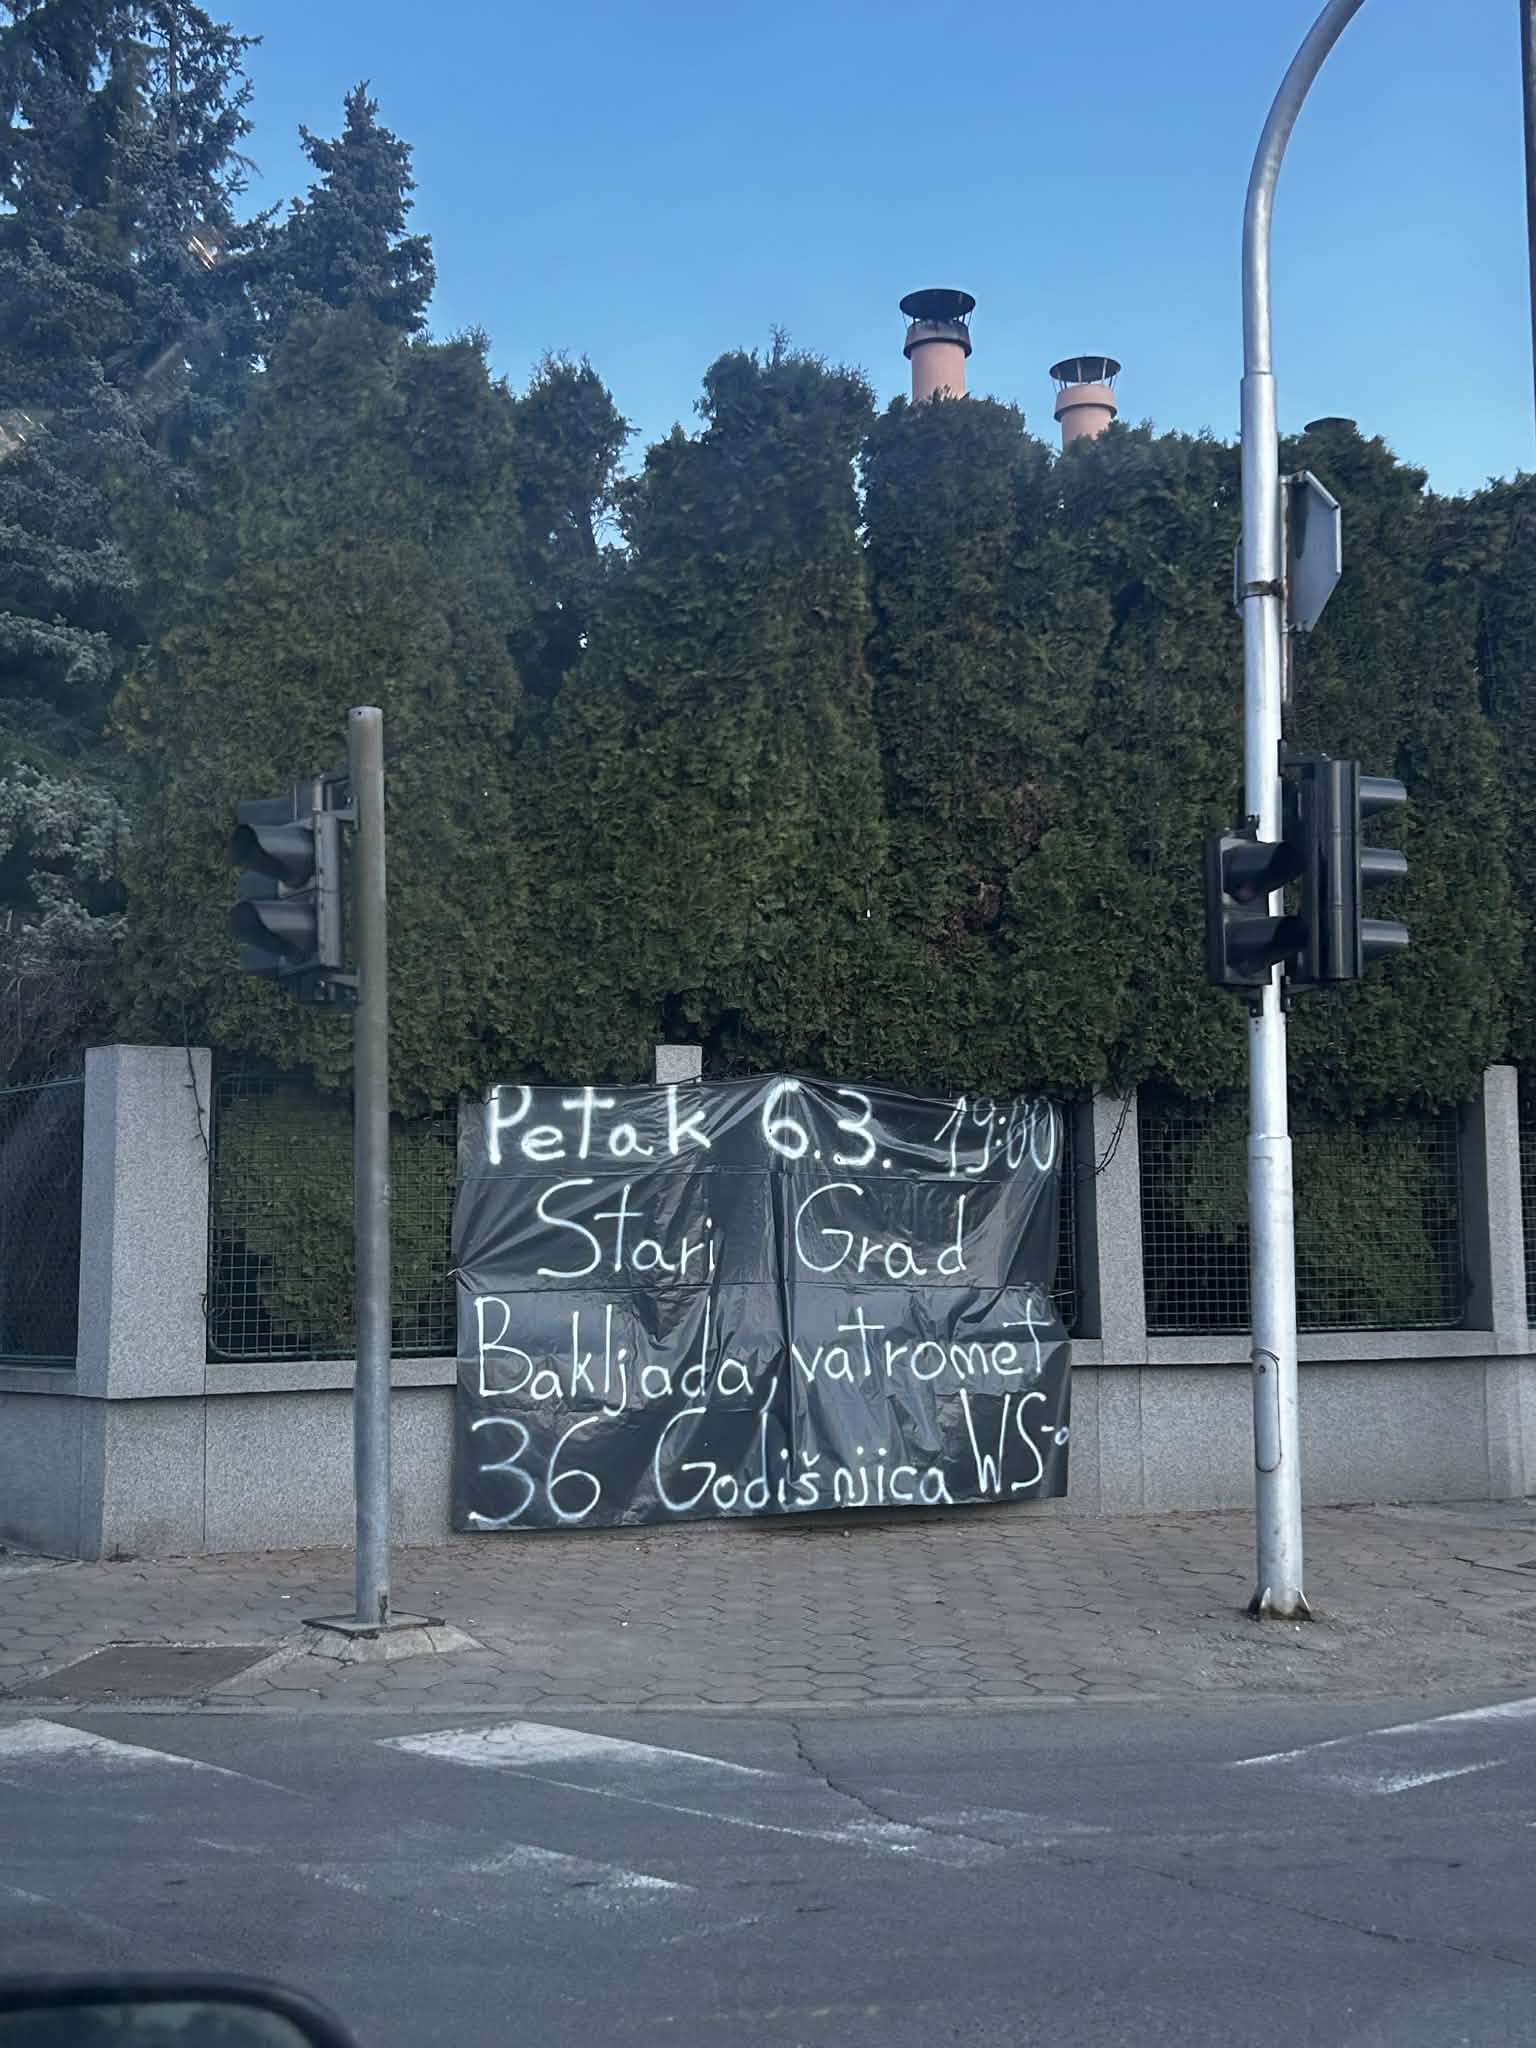 Petak 6.3. 19:00
Stari Grad
Bakljada, vatromet
36 Godišnjica WS-a